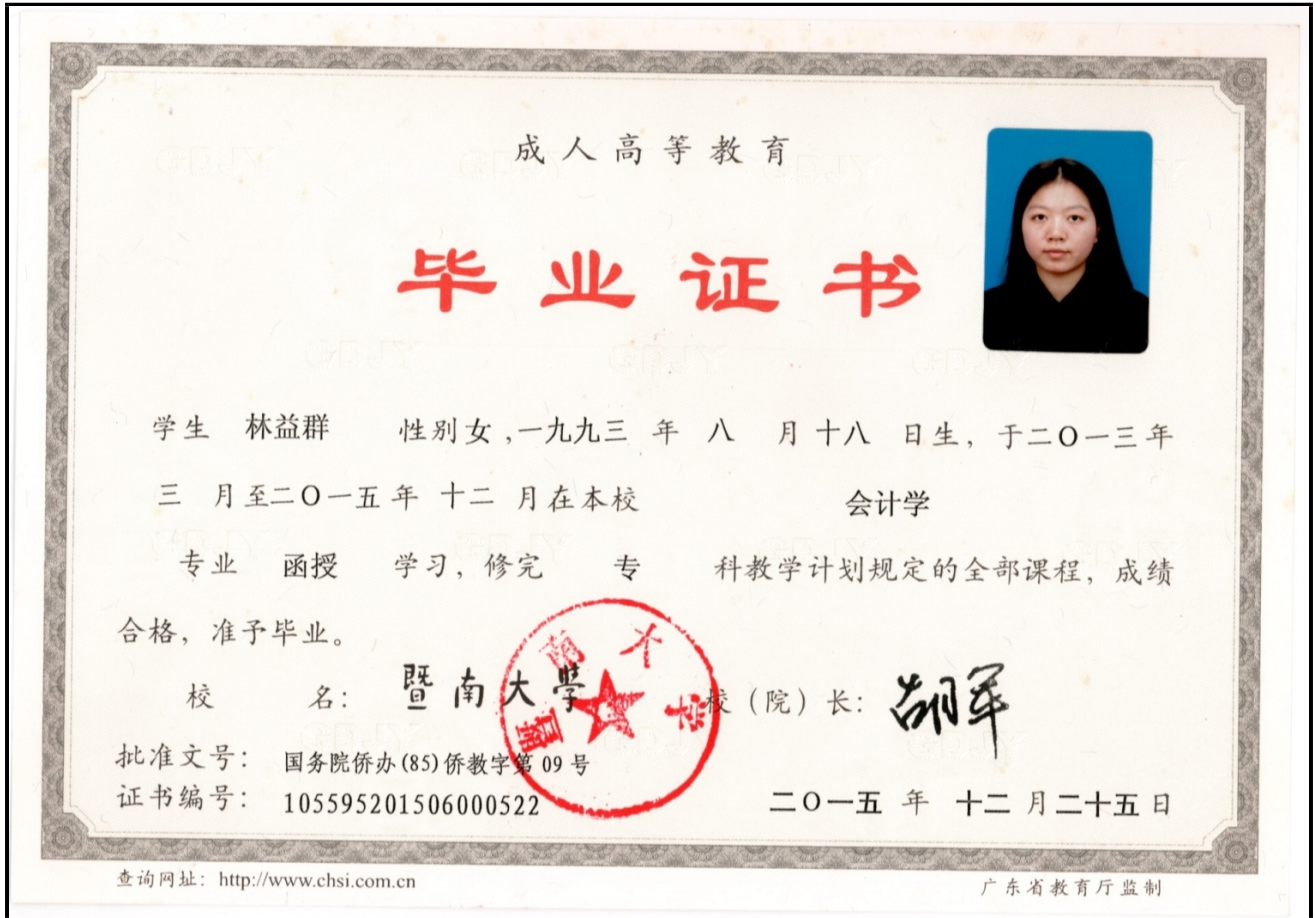 成人高等教育
毕业证书
学生 林益群 性别女,一九九三 年 八 月十八 日生, 于二〇一三年
三 月至二〇一五年 十二 月在本校 会计学
专业 函授 学习, 修完 专 科教学计划规定的全部课程, 成绩
合格, 准予毕业。
校 名: 暨南大學 校(院)长: 胡军
暨南大学
批准文号: 国务院侨办(85)侨教字第 09 号
证书编号: 105595201506000522 二〇一五 年 十二 月二十五日
查询网址: http://www.chsi.com.cn 广东省教育厅监制